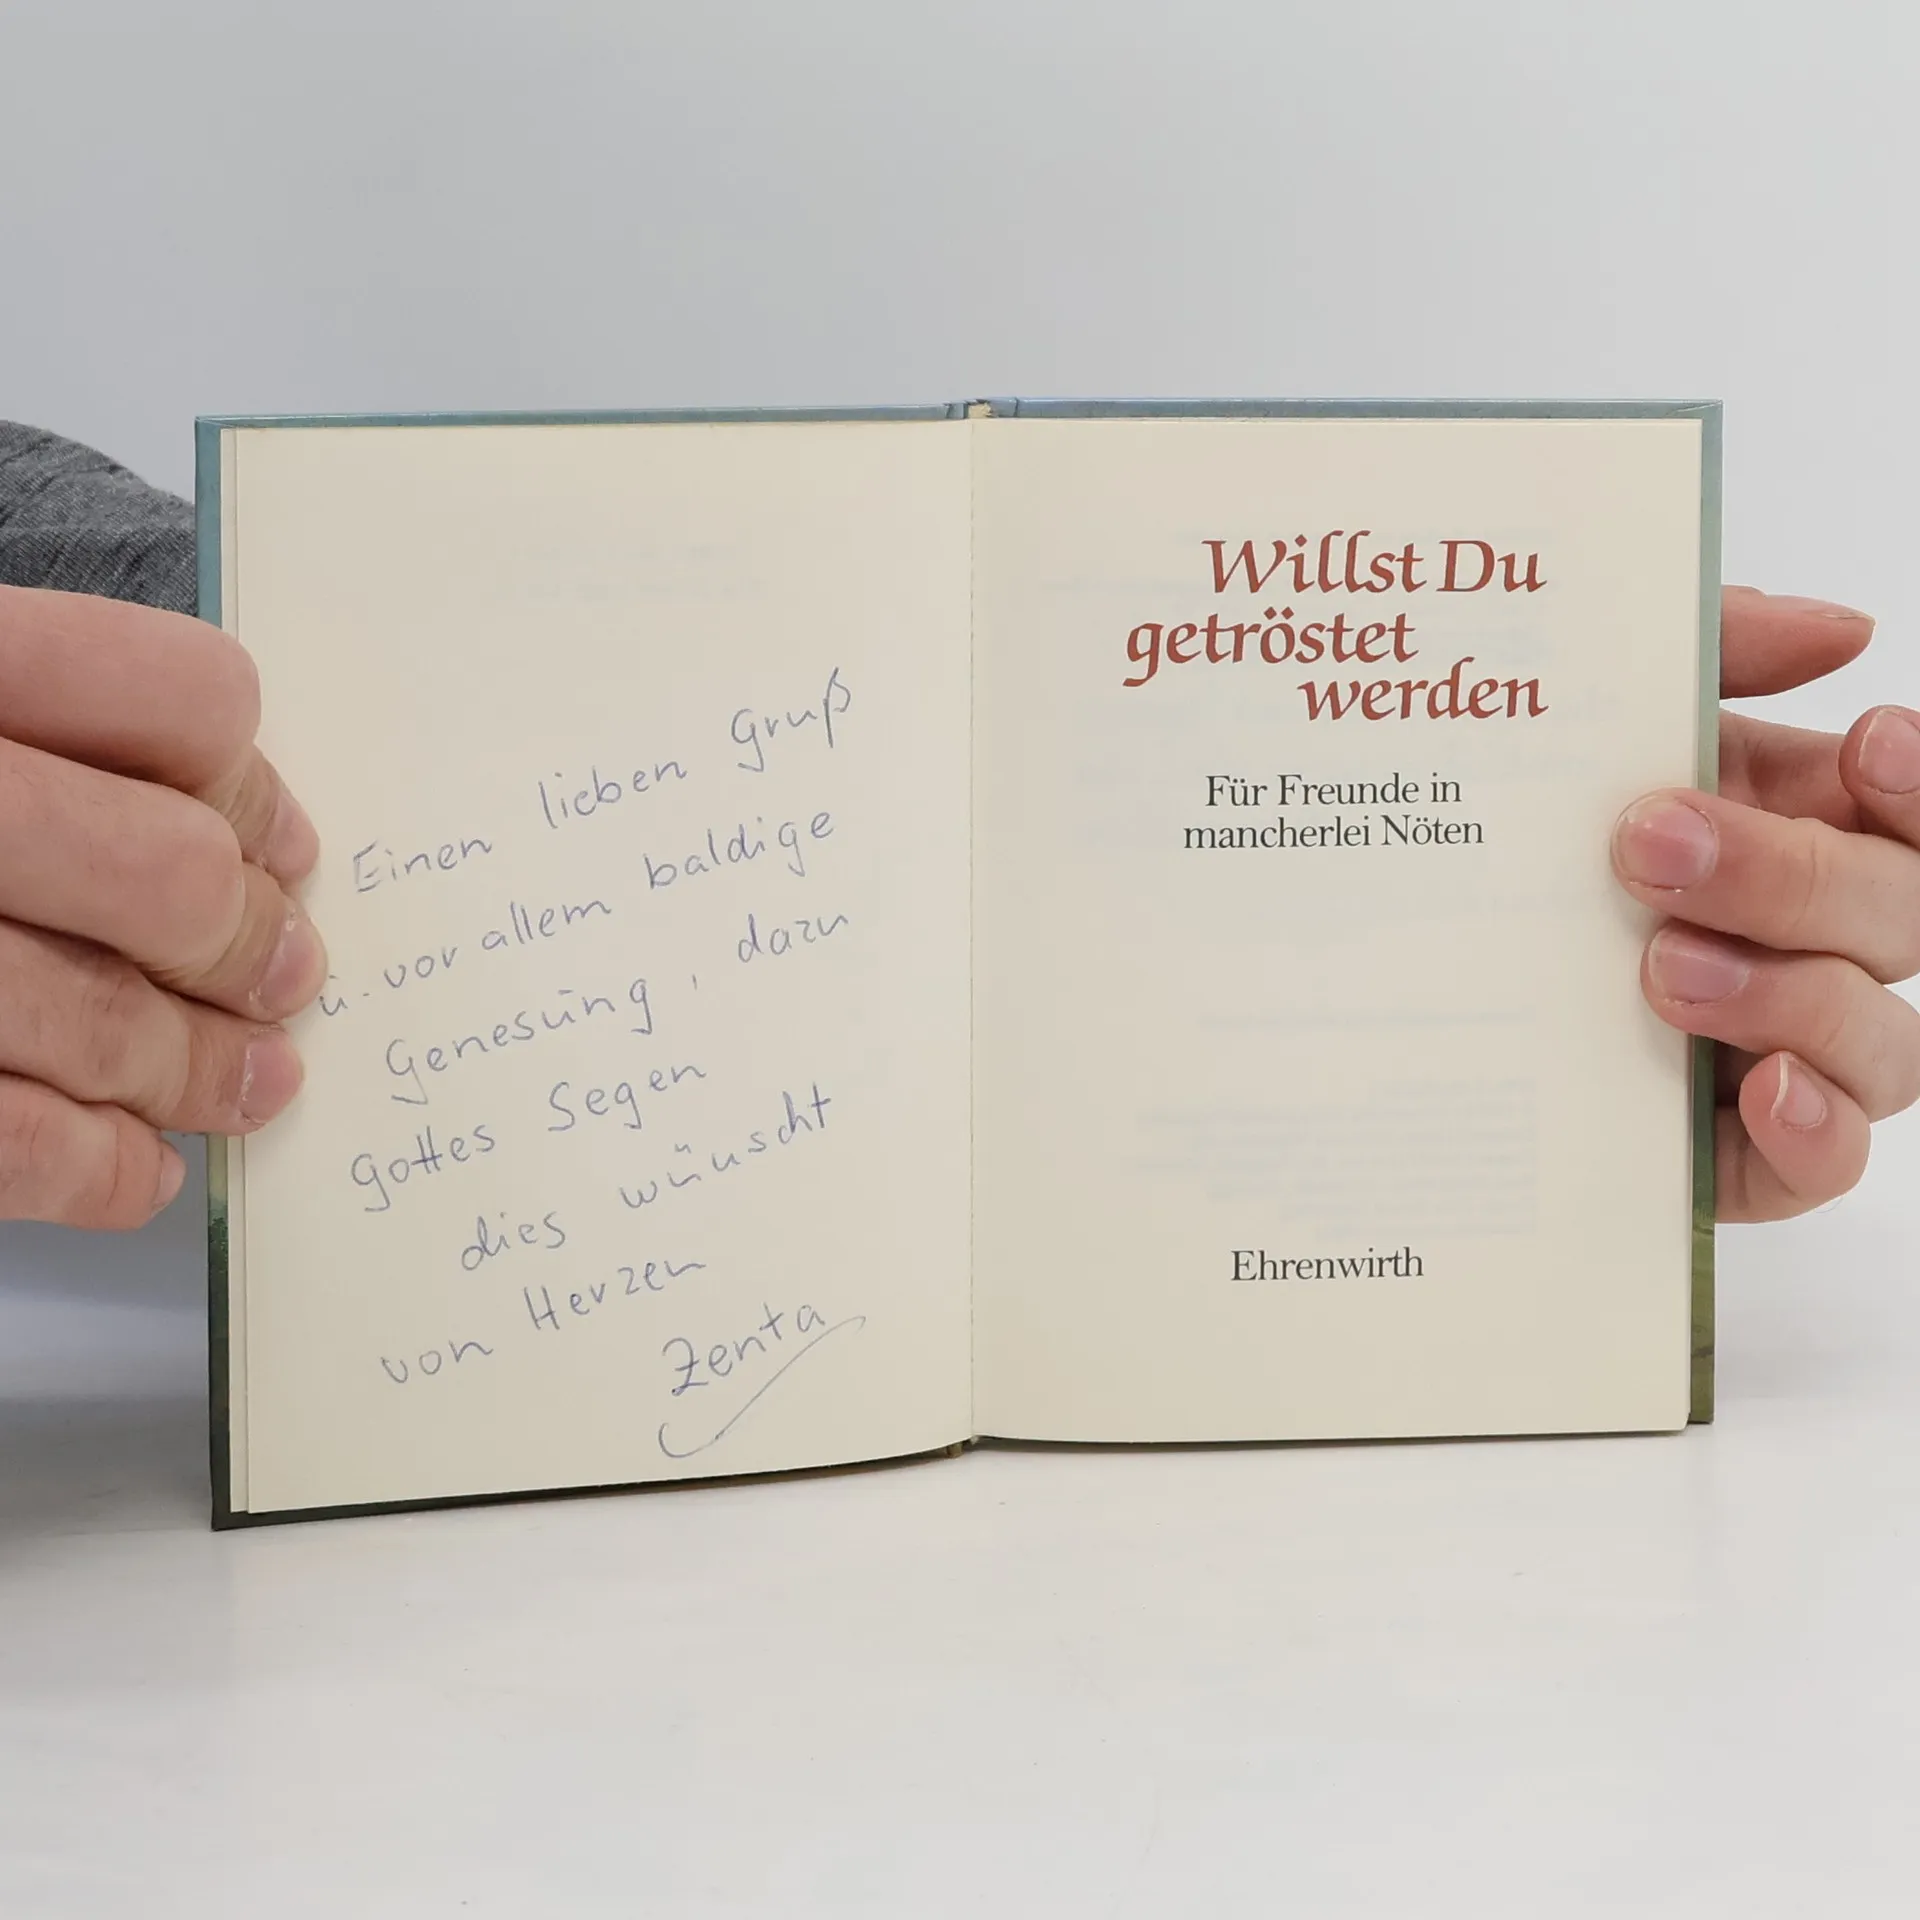 Einen lieben Gruß
u. vor allem baldige
Genesung, dazu
Gottes Segen
dies wünscht
von Herzen
Zenta
Willst Du
getröstet
werden
Für Freunde in
mancherlei Nöten
Ehrenwirth